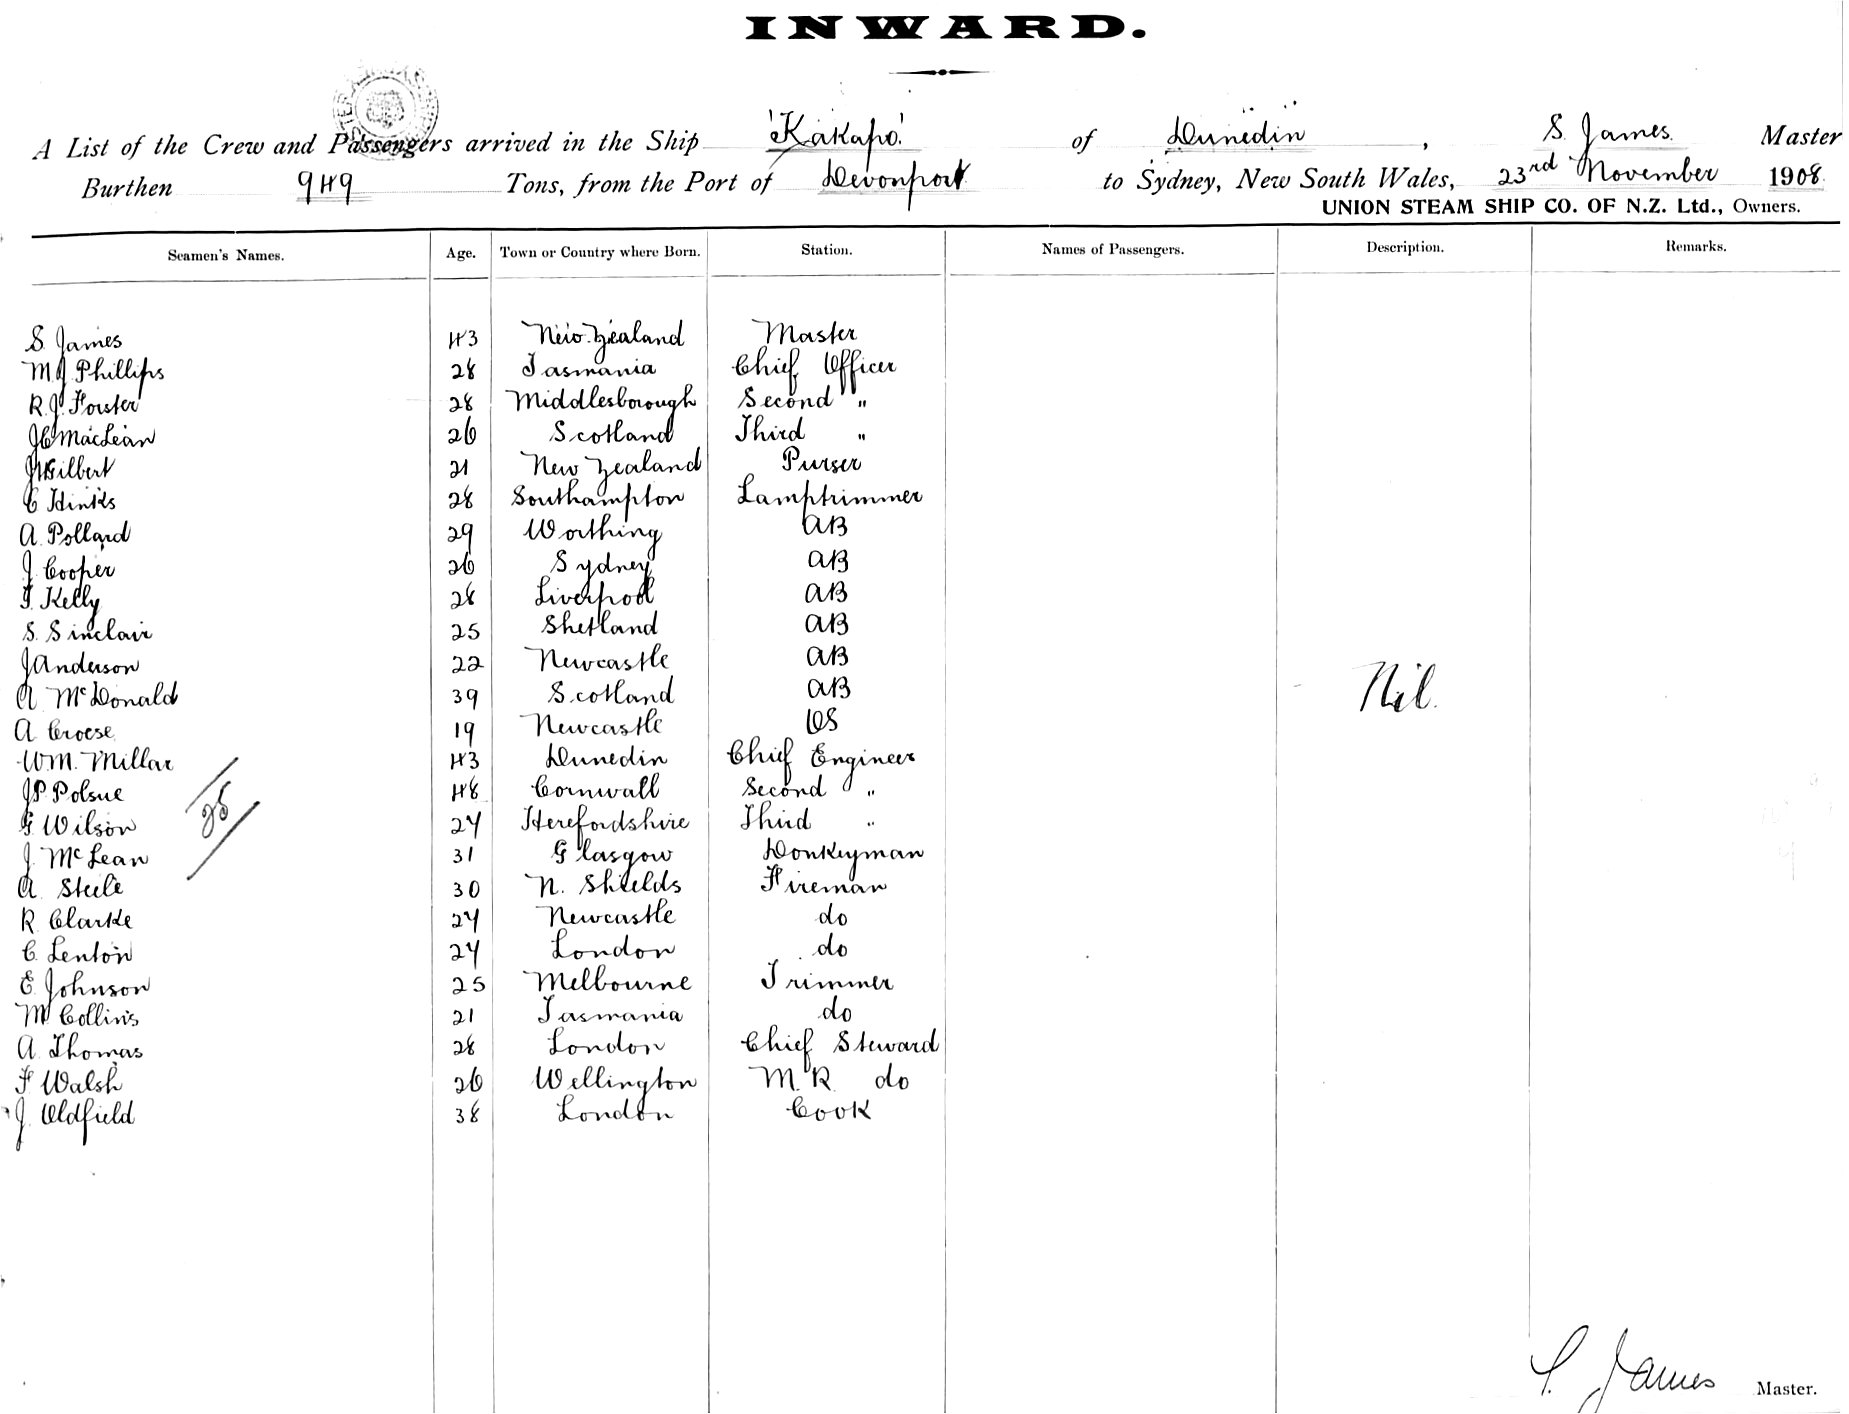 INWARD.
A List of the Crew and Passengers arrived in the Ship 'Kakapo' of Dunedin, S. James. Master
Burthen 949 Tons, from the Port of Devonport to Sydney, New South Wales, 23rd November 1908.
UNION STEAM SHIP CO. OF N.Z. Ltd., Owners.
Seamen's Names. Age. Town or Country where Born. Station. Names of Passengers. Description. Remarks.
S. James 43 New Zealand Master
M J Phillips 28 Tasmania Chief Officer
R. J. Forster 28 Middlesborough Second "
J C MacLean 26 Scotland Third "
Gilbert 21 New Zealand Purser
C Hinks 28 Southampton Lamptrimmer
A. Pollard 29 Worthing AB
J Cooper 26 Sydney AB
T. Kelly 28 Liverpool AB
S. Sinclair 25 Shetland AB
J Anderson 22 Newcastle AB
A McDonald 39 Scotland AB Nil.
A Croese 19 Newcastle OS
Wm. Millar 43 Dunedin Chief Engineer
J P Polsue 48 Cornwall Second "
25
G Wilson 24 Herefordshire Third "
J. McLean 31 Glasgow Donkeyman
A. Steile 30 N. Shields Fireman
R Clarke 24 Newcastle do
C. Lenton 24 London do
E. Johnson 25 Melbourne Trimmer
M Collins 21 Tasmania do
A. Thomas 28 London Chief Steward
F Walsh 26 Wellington M. R. do
J. Oldfield 38 London Cook
S. James Master.